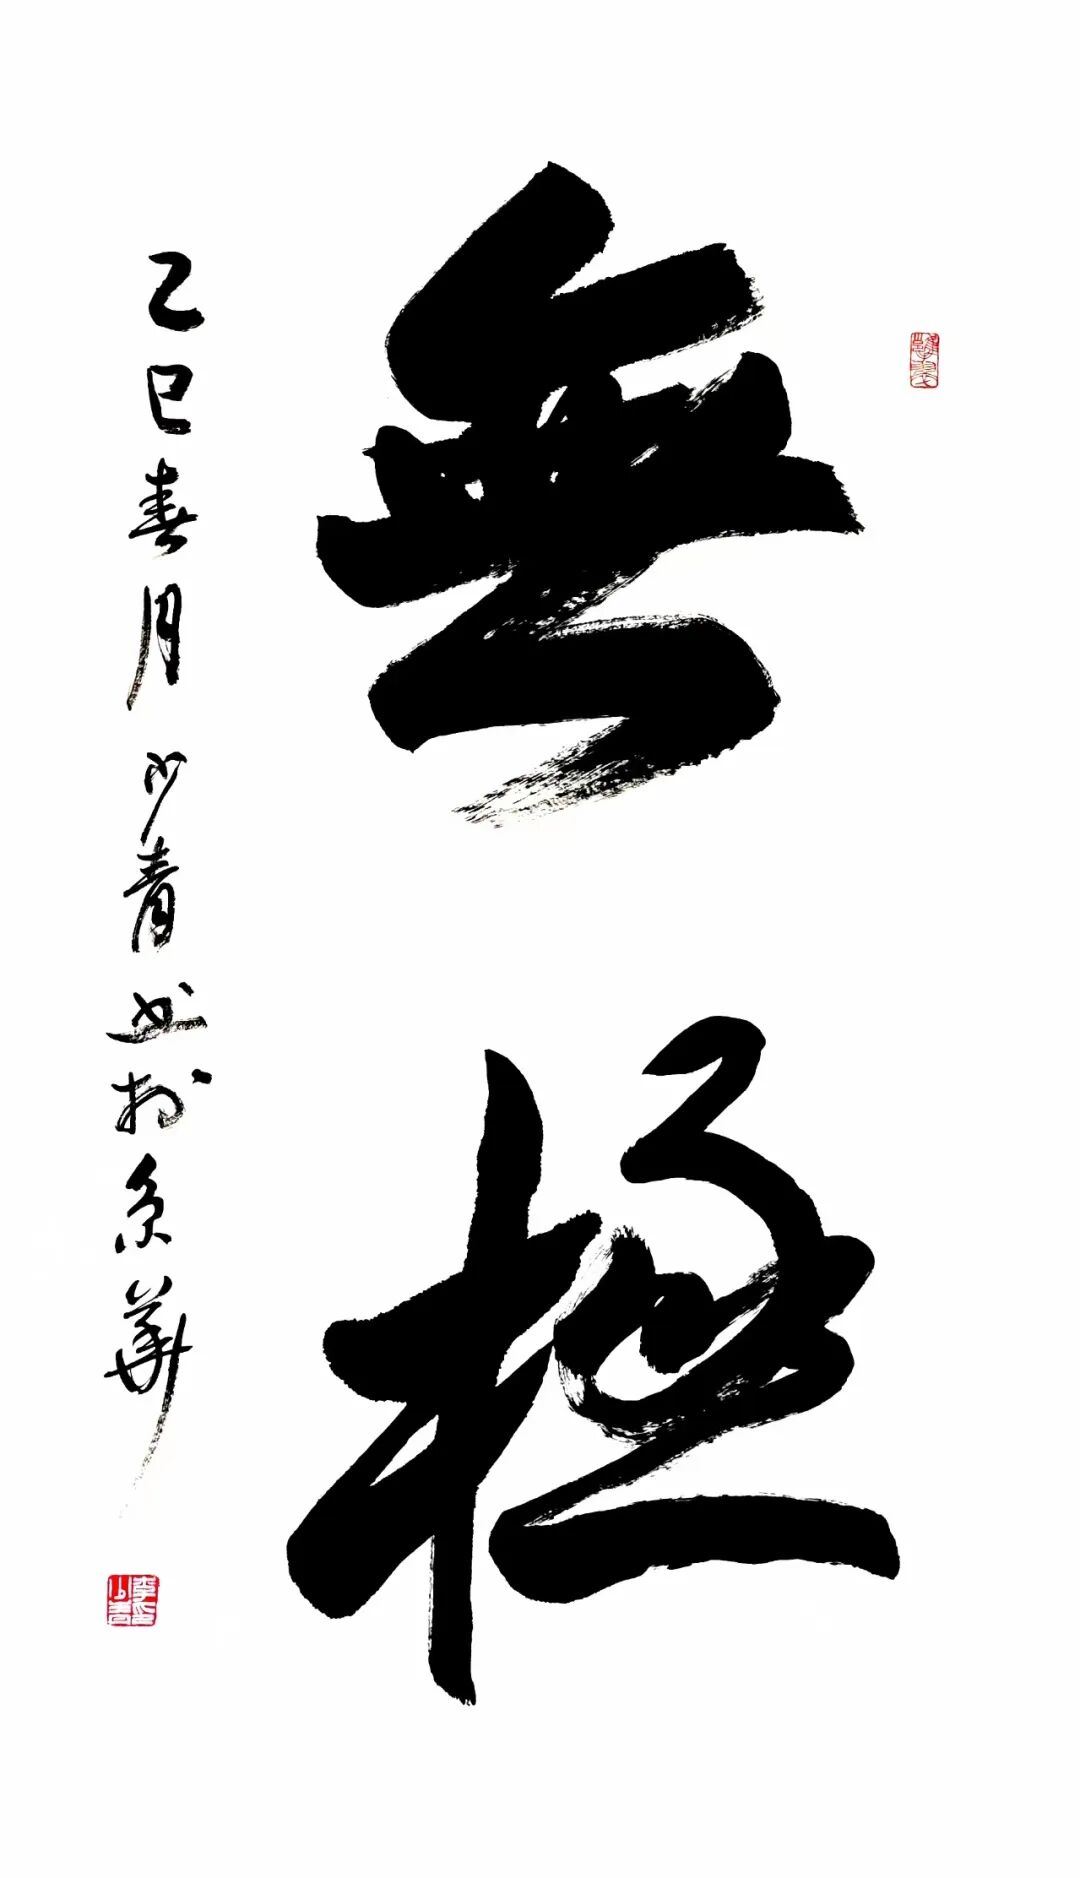 無極
乙巳春月少青书于京華